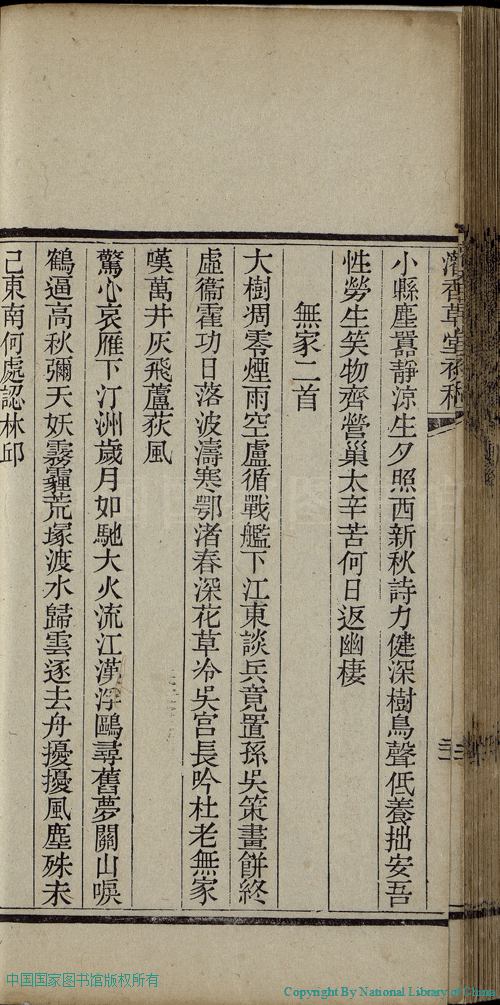 香草堂
小縣塵囂靜涼生夕照西新秋詩力健深樹鳥聲低養拙安吾
性勞生笑物齊營巢太辛苦何日返幽棲
無家二首
大樹凋零煙雨空盧循戰艦下江東談兵竟置孫吳策畫餅終
虛衞霍功日落波濤寒鄂渚春深花草冷吳宮長吟杜老無家
嘆萬井灰飛蘆荻風
驚心哀雁下汀洲歲月如馳大火流江漢浮鷗尋舊夢關山唳
鶴逼高秋彌天妖霧霾荒塚渡水歸雲逐去舟擾擾風塵殊未
已東南何處認林邱
中国国家图书馆版权所有
Copyright By National Library of China